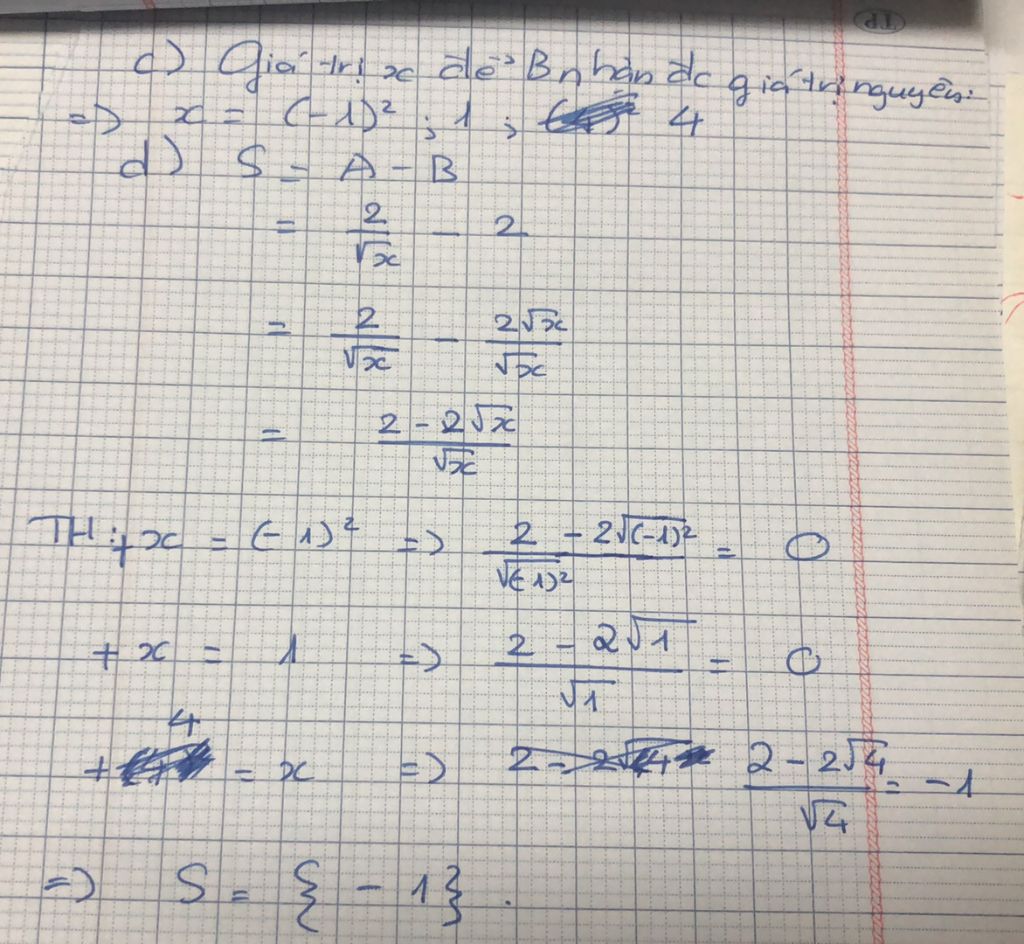 TP
c) Giá trị x để B nhận đc giá trị nguyên:
=> x = (-1)² ; 1 ; 4
d) S = A - B
= 2/√x - 2
= 2/√x - 2√x/√x
= (2 - 2√x)/√x
TH: + x = (-1)² => (2 - 2√(-1)²)/√(-1)² = 0
+ x = 1 => (2 - 2√1)/√1 = 0
+ 4 = x => (2 - 2√4)/√4 = -1
=> S = {-1}.